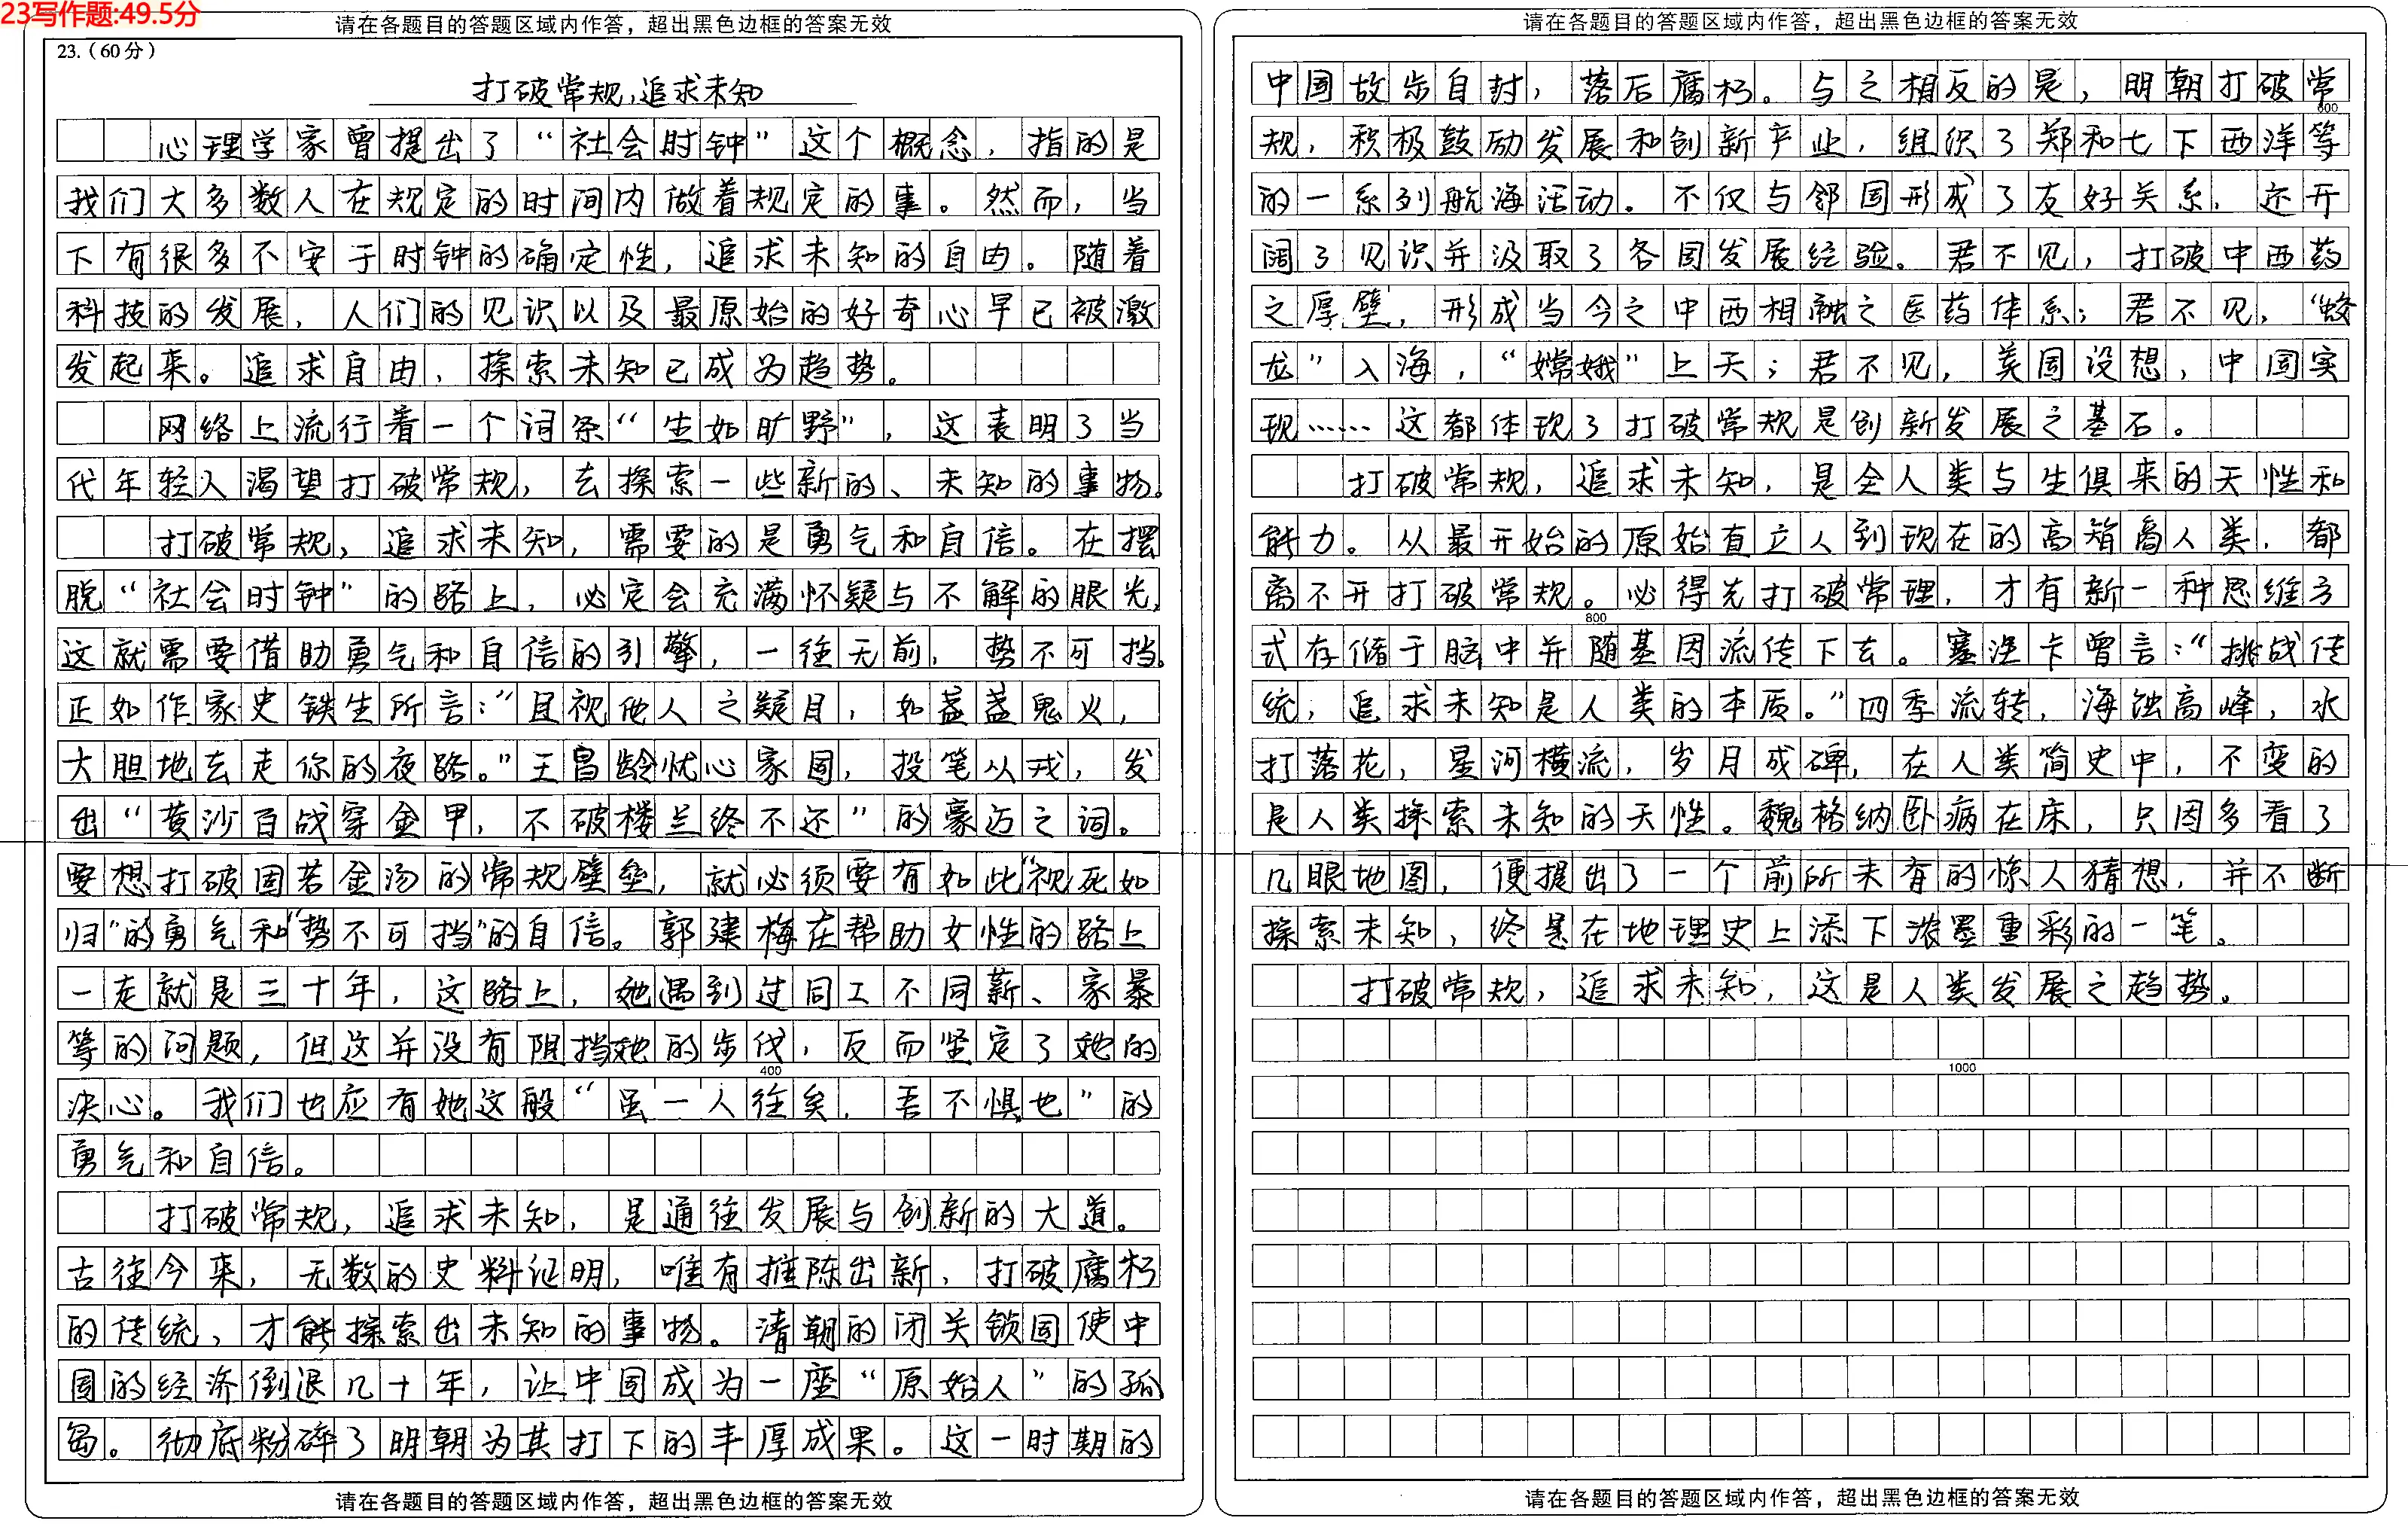 23写作题:49.5分
请在各题目的答题区域内作答，超出黑色边框的答案无效
23.（60分）
打破常规,追求未知
心理学家曾提出了“社会时钟”这个概念，指的是
我们大多数人在规定的时间内做着规定的事。然而，当
下有很多不安于时钟的确定性，追求未知的自由。随着
科技的发展，人们的见识以及最原始的好奇心早已被激
发起来。追求自由，探索未知已成为趋势。
网络上流行着一个词条“生如旷野”，这表明了当
代年轻人渴望打破常规，去探索一些新的、未知的事物。
打破常规，追求未知，需要的是勇气和自信。在摆
脱“社会时钟”的路上，必定会充满怀疑与不解的眼光，
这就需要借助勇气和自信的引擎，一往无前，势不可挡。
正如作家史铁生所言：“且视他人之疑目，如盏盏鬼火，
大胆地去走你的夜路。”王昌龄忧心家国，投笔从戎，发
出“黄沙百战穿金甲，不破楼兰终不还”的豪迈之词。
要想打破固若金汤的常规壁垒，就必须要有如此“视死如
归”的勇气和“势不可挡”的自信。郭建梅在帮助女性的路上
一走就是三十年，这路上，她遇到过同工不同薪、家暴
等的问题，但这并没有阻挡她的步伐，反而坚定了她的
400
决心。我们也应有她这般“虽一人往矣，吾不惧也”的
勇气和自信。
打破常规，追求未知，是通往发展与创新的大道。
古往今来，无数的史料证明，唯有推陈出新，打破腐朽
的传统，才能探索出未知的事物。清朝的闭关锁国使中
国的经济倒退几十年，让中国成为一座“原始人”的孤
岛。彻底粉碎了明朝为其打下的丰厚成果。这一时期的
请在各题目的答题区域内作答，超出黑色边框的答案无效
请在各题目的答题区域内作答，超出黑色边框的答案无效
中国故步自封，落后腐朽。与之相反的是，明朝打破常
600
规，积极鼓励发展和创新产业，组织了郑和七下西洋等
的一系列航海活动。不仅与邻国形成了友好关系，还开
阔了见识并汲取了各国发展经验。君不见，打破中西药
之厚壁，形成当今之中西相融之医药体系；君不见，“蛟
龙”入海，“嫦娥”上天；君不见，美国设想，中国实
现……这都体现了打破常规是创新发展之基石。
打破常规，追求未知，是全人类与生俱来的天性和
能力。从最开始的原始直立人到现在的高智商人类，都
离不开打破常规。必得先打破常理，才有新一种思维方
800
式存储于脑中并随基因流传下去。塞涅卡曾言：“挑战传
统，追求未知是人类的本质。”四季流转，海蚀高峰，水
打落花，星河横流，岁月成碑，在人类简史中，不变的
是人类探索未知的天性。魏格纳卧病在床，只因多看了
几眼地图，便提出了一个前所未有的惊人猜想，并不断
探索未知，终是在地理史上添下浓墨重彩的一笔。
打破常规，追求未知，这是人类发展之趋势。
1000
请在各题目的答题区域内作答，超出黑色边框的答案无效